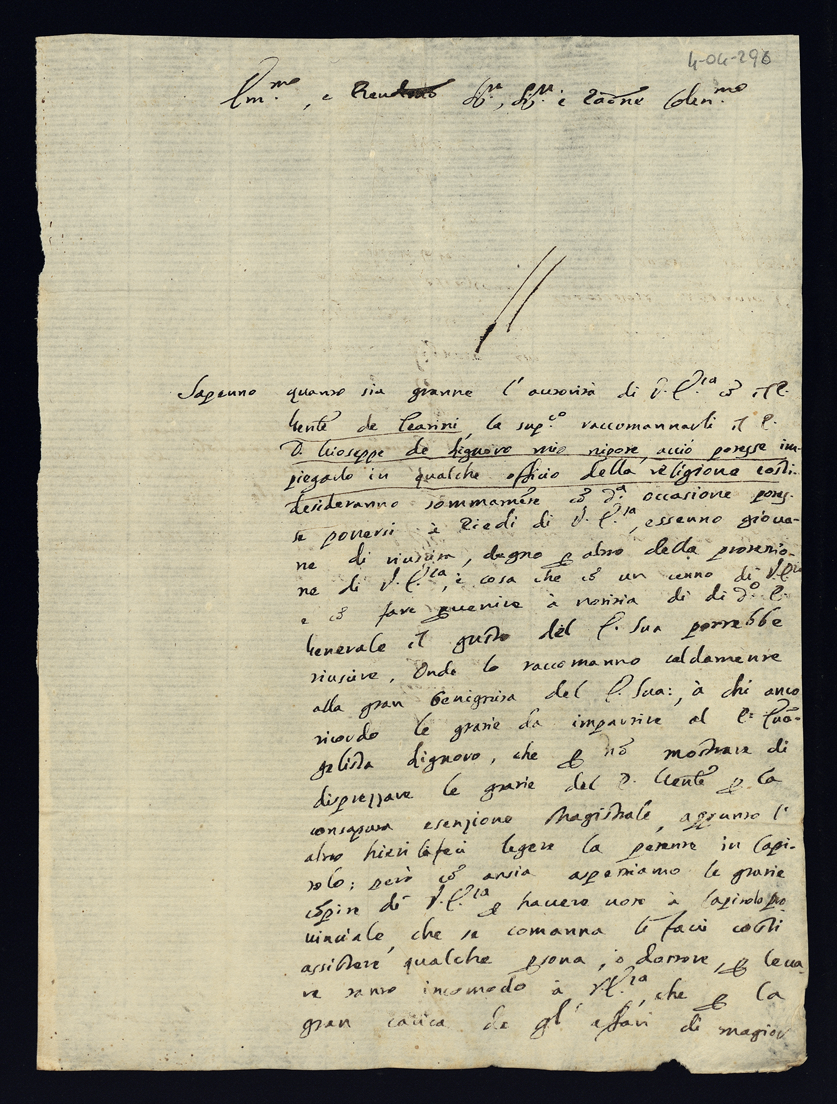 4-04-296
Ill.mo, e Reud Sig.re, Sig.r e Padrone Colen.mo
Sapenno quanto sia granne l'autorità di V.P.ta cō il P.
Gen.le de Teatini, la sup.co raccomannarli il P.
D. Gioseppe de Liguoro mio nipote, acciò potesse im-
piegarlo in qualche officio della religione costi
desideranno sommamēte cō d.a occasione potes-
se ponersi à Piedi di V.P.ta, essenno giova-
ne di riuscita, degno per altro della protettio-
ne di V.P.ta, è cosa che cō un cenno di V.P.ta
e cō fare pervenire à notitia di di d.o P.
Generale il gusto del P. Sua potrebbe
riuscire, Onde lo raccomanno caldamente
alla gran benignità del P. Sua:, à chi anco
ricordo le gratie da impartire al P.e Evā-
gelista Liguoro, che per nō mostrare di
disprezzare le gratie del P. Gen.le per la
esenzione Magistrale, l'
altro hieri fecī legere la patente in Capi-
tolo; però cō ansia aspettiamo le gratie
di V.P.ta per havere voto à Capitolo pro
vinciale, che se comanna li facci costì
assistere qualche persona, o dottore, per leva-
re tanto incomodo à V.P.ta, che per la
gran carica de gl'affari di magior